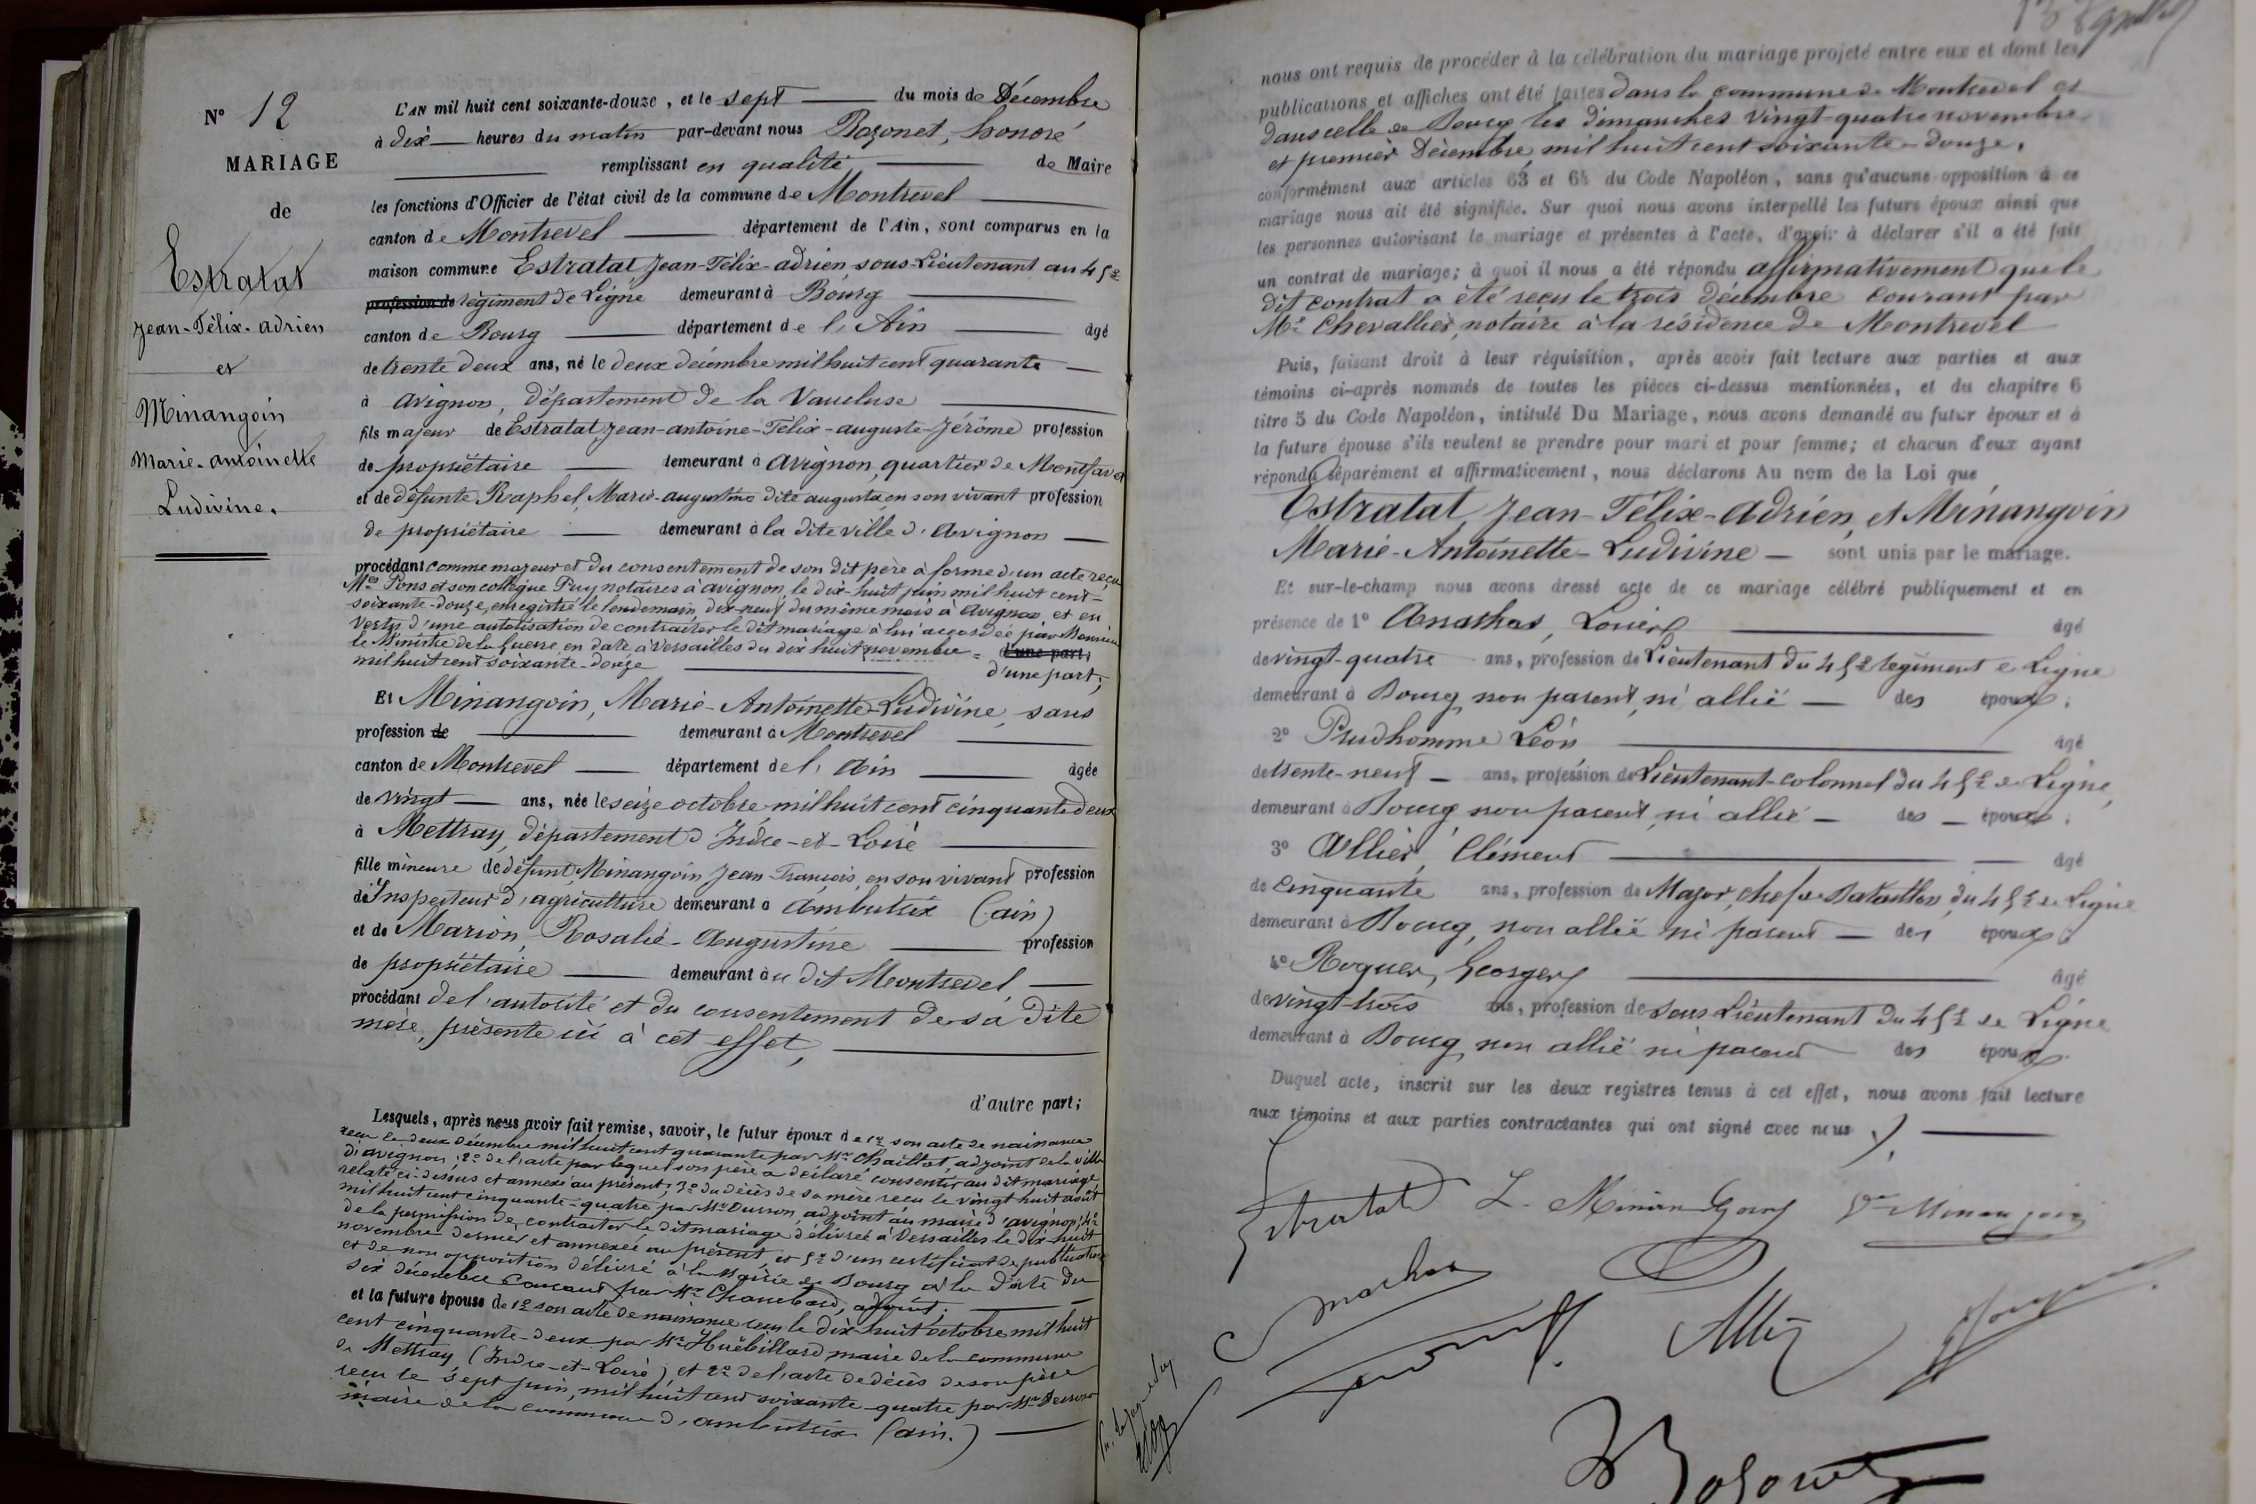 N° 12
MARIAGE
de
Estratat
Jean-Félix-adrien
et
Minangoin
Marie-antoinette
Ludivine.
L'AN mil huit cent soixante-douze, et le sept du mois de Décembre
à dix heures du matin par-devant nous Bozonet, honoré
remplissant en qualité de Maire
les fonctions d'Officier de l'état civil de la commune de Montrevel
canton de Montrevel département de l'Ain, sont comparus en la
maison commune Estratat Jean-Félix-adrien, sous-Lieutenant au 45e
profession de régiment de Ligne demeurant à Bourg
canton de Bourg département de l'Ain âgé
de trente deux ans, né le deux décembre mil huit cent quarante
à avignon, département de la Vaucluse
fils majeur de Estratat Jean-antoine-Félix-auguste-Jérôme profession
de propriétaire demeurant à avignon, quartier de Montfavet
et de défunte Raphel, Marie-augustine dite augusta, en son vivant profession
de propriétaire demeurant à la dite ville d'avignon
procédant comme majeur et du consentement de son dit père à forme d'un acte reçu
Mes Pons et son collègue Puy notaires à avignon, le dix-huit juin mil huit cent-
soixante-douze, enregistré le lendemain dix-neuf du même mois à avignon, et en
vertu d'une autorisation de contracter le dit mariage à lui accordée par Monsieur
le Ministre de la Guerre, en date à Versailles du dix huit novembre d'une part;
mil huit cent soixante-douze d'une part;
Et Minangoin, Marie-Antoinette-Ludivine, sans
profession de demeurant à Montrevel
canton de Montrevel département de l'Ain âgée
de vingt ans, née le seize octobre mil huit cent cinquante deux
à Mettray, département d'Indre-et-Loire
fille mineure de défunt Minangoin Jean-François, en son vivant profession
d'Inspecteur d'agriculture demeurant à ambutrix (ain)
et de Marion, Rosalie-Augustine profession
de propriétaire demeurant au dit Montrevel
procédant de l'autorité et du consentement de sa dite
mère, présente ici à cet effet,
d'autre part;
Lesquels, après nous avoir fait remise, savoir, le futur époux de 1° son acte de naissance
reçu le deux décembre mil huit cent quarante par Mr Chaillot, adjoint de la ville
d'avignon; 2° de l'acte par lequel son père a déclaré consentir au dit mariage
relaté ci-dessus et annexé au présent; 3° du décès de sa mère reçu le vingt huit août
mil huit cent cinquante-quatre par Mr adjoint au maire d'avignon; 4°
de la permission de contracter le dit mariage délivrée à Versailles le dix-huit
novembre dernier et annexée au présent, et 5° d'un certificat de publication
et de non opposition délivré à la Mairie de Bourg à la date du
six décembre courant par Mr adjoint;
et la future épouse de 1° son acte de naissance reçu le dix-huit octobre mil huit
cent cinquante-deux par Mr Huebillard maire de la commune
de Mettray (Indre-et-Loire), et 2° de l'acte de décès de son père
reçu le sept juin mil huit cent soixante-quatre par Mr
maire de la commune d'ambutrix (ain.)
nous ont requis de procéder à la célébration du mariage projeté entre eux et dont les
publications et affiches ont été faites dans la commune de Montrevel et
dans celle de Bourg les dimanches vingt-quatre novembre
et premier Décembre mil huit cent soixante-douze,
conformément aux articles 63 et 64 du Code Napoléon, sans qu'aucune opposition à ce
mariage nous ait été signifiée. Sur quoi nous avons interpellé les futurs époux ainsi que
les personnes autorisant le mariage et présentes à l'acte, d'avoir à déclarer s'il a été fait
un contrat de mariage; à quoi il nous a été répondu affirmativement que le
dit contrat a été reçu le trois décembre courant par
Me Chevallier, notaire à la résidence de Montrevel
Puis, faisant droit à leur réquisition, après avoir fait lecture aux parties et aux
témoins ci-après nommés de toutes les pièces ci-dessus mentionnées, et du chapitre 6
titre 5 du Code Napoléon, intitulé Du Mariage, nous avons demandé au futur époux et à
la future épouse s'ils veulent se prendre pour mari et pour femme; et chacun d'eux ayant
répondu séparément et affirmativement, nous déclarons Au nom de la Loi que
Estratat, Jean-Félix-Adrien, et Minangoin
Marie-Antoinette-Ludivine sont unis par le mariage.
Et sur-le-champ nous avons dressé acte de ce mariage célébré publiquement et en
présence de 1° Louis âgé
de vingt-quatre ans, profession de Lieutenant du 45e régiment de Ligne
demeurant à Bourg non parent, ni allié des époux;
2° Prudhomme Léon âgé
de trente-neuf ans, profession de Lieutenant-colonel du 45e de Ligne,
demeurant à Bourg non parent, ni allié des époux;
3° Allier, Clément âgé
de cinquante ans, profession de Major, chef de Bataillon, du 45e de Ligne
demeurant à Bourg, non allié ni parent des époux;
4° Roguer, Georges âgé
de vingt-trois ans, profession de sous Lieutenant du 45e de Ligne
demeurant à Bourg non allié ni parent des époux.
Duquel acte, inscrit sur les deux registres tenus à cet effet, nous avons fait lecture
aux témoins et aux parties contractantes qui ont signé avec nous
Estratat L. Minangoin Ve Minangoin
Allier
Bozonet